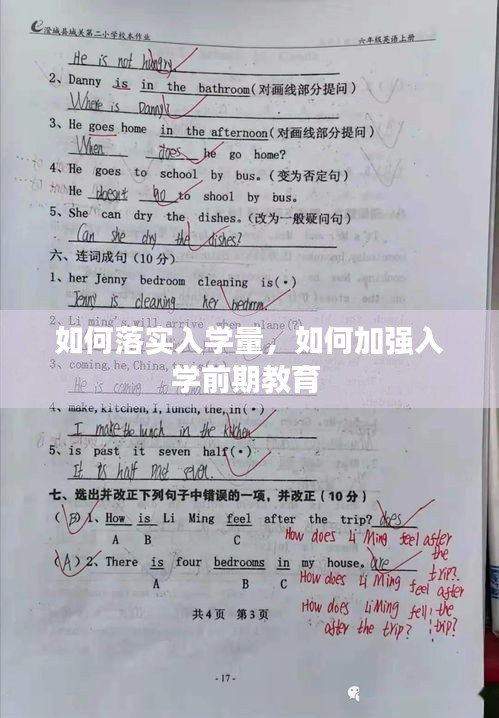 澄城县城关第二小学校本作业 六年级英语上册
He is not hungry.
2、Danny is in the bathroom(对画线部分提问)
Where is Danny?
3、He goes home in the afternoon(对画线部分提问)
When does he go home?
4、He goes to school by bus.(变为否定句)
He doesn't go to shool by bus.
5、She can dry the dishes.(改为一般疑问句)
Can she dry the dishes?
六、连词成句(10分)
1、her Jenny bedroom cleaning is(·)
Jenny is cleaning her bedroom.
2、Li ming's will arrive when plane(?)
如何落实入学量，如何加强入
3、coming,he,China,
学前期教育
He is coming
4、make,kitchen,I,lunch,the,in(·)
I make the lunch in the kitchen
5、is past it seven half(·)
It is half past seven.
七、选出并改正下列句子中错误的一项,并改正(10分)
(B)1、How is Li Ming feel after the trip? does
A B C
How does Li Ming feel after the trip?
(A)2、There is four bedrooms in my house. are
A B C
How does Li Ming feel after the trip?
How does Li Ming fell after the trip?
共4页 第3页
-17-